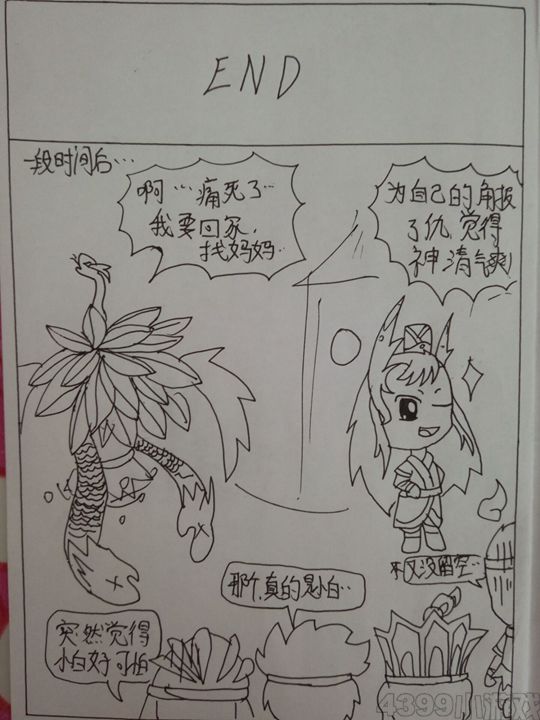 END
一段时间后…
啊…痛死了…
我要回家,
找妈妈…
为自己的角报
了仇,觉得
神清气爽!
又没留空…
那个,真的是小白…
突然觉得
小白好可怕
4399小游戏